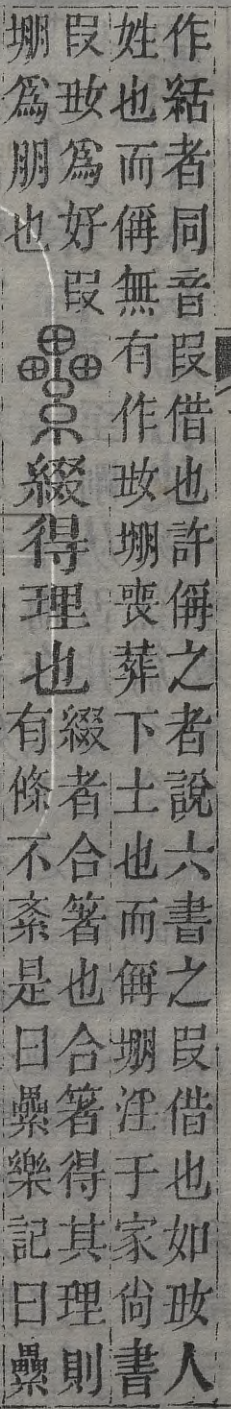 作絬者同音叚借也許偁之者說六書之叚借也如𡚽人
姓也而偁無有作𡚽堋喪葬下土也而偁堋淫于家尙書
叚𡚽爲好叚
堋爲朋也
纍綴得理也
綴者合箸也合箸得其理則
有條不紊是曰纍樂記曰纍